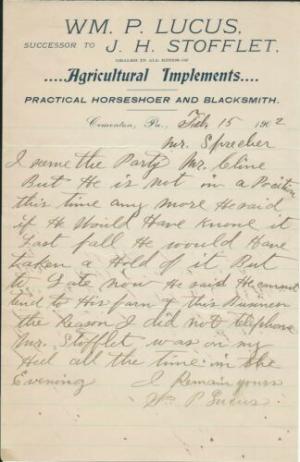 WM. P. LUCUS,
SUCCESSOR TO J. H. STOFFLET,
DEALER IN ALL KINDS OF
....Agricultural Implements....
PRACTICAL HORSESHOER AND BLACKSMITH.
Cementon, Pa., Feb 15 1902
Mr. Sprecher
I seme the Party Mr. Cline
But He is not in a Position
this time any more He said
if He Would Have Know it
Last fall He would Have
taken a Hold of it But
to Late now He said He cannot
tend to His farm & this Business
the Reason I did not telephone
Mr. Stofflet was on my
Heel all the time in the
Evening I Remain yours
Wm P Lucus